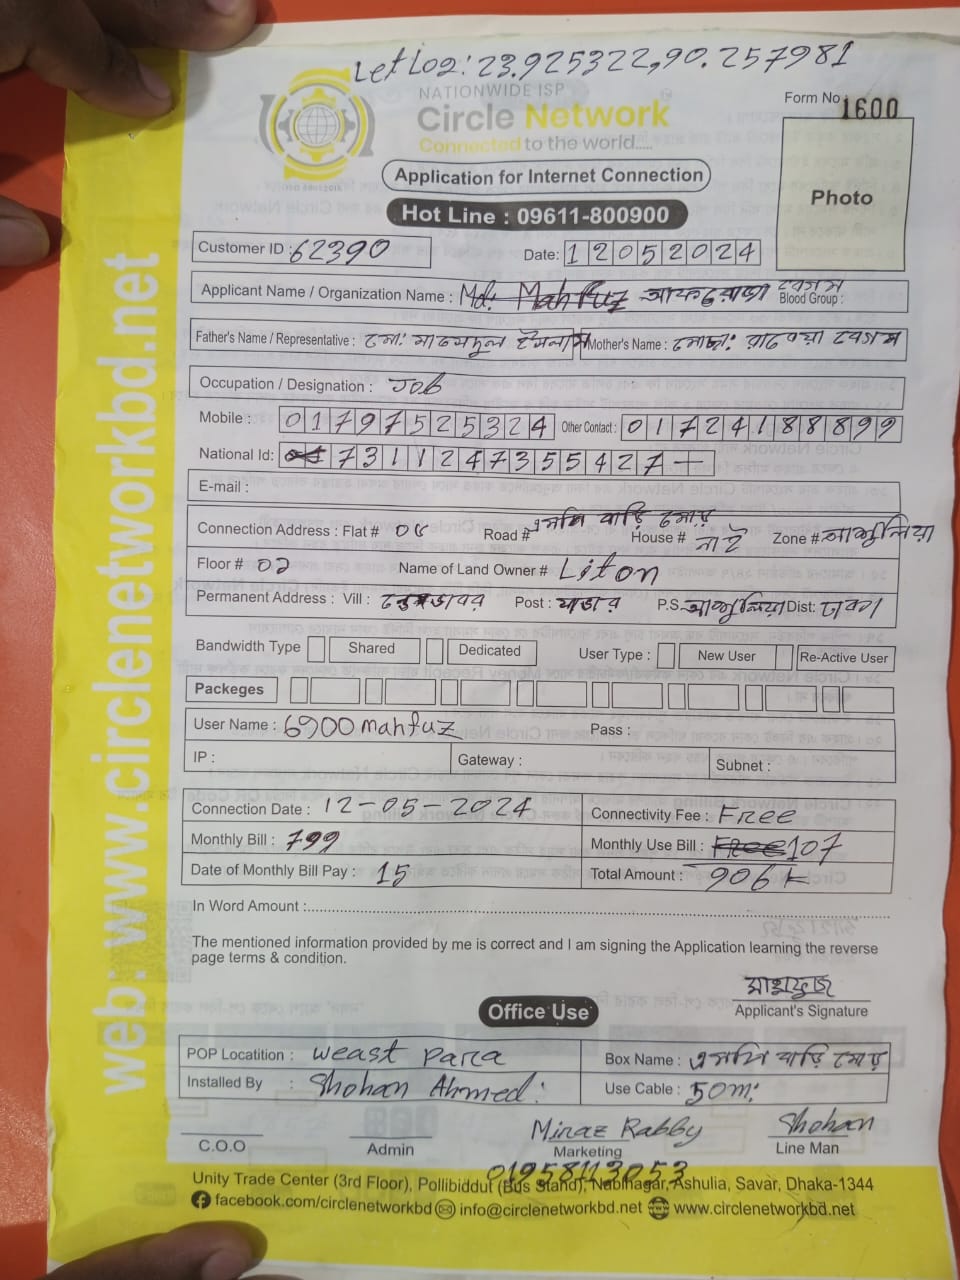 Let Log: 23.925322,90.257981
NATIONWIDE ISP
Circle Network
Connected to the world.....
Form No 1600
Photo
Application for Internet Connection
Hot Line : 09611-800900
Customer ID : 62390 Date: 12052024
Applicant Name / Organization Name : Md. Mahfuz আফরোজা বেগম Blood Group :
Father's Name / Representative : মো: মাজেদুল ইসলাম Mother's Name : মোছা: রাবেয়া বেগম
Occupation / Designation : Job
Mobile : 01797525324 Other Contact : 01724188899
National Id: 7311247355427
E-mail :
Connection Address : Flat # 04 Road # এমপি বাড়ি মোড় House # নাই Zone # আশুলিয়া
Floor # 02 Name of Land Owner # Liton
Permanent Address : Vill : Post : P.S. আশুলিয়া Dist: ঢাকা
Bandwidth Type Shared Dedicated User Type : New User Re-Active User
Packeges
User Name : 6900mahfuz Pass :
IP : Gateway : Subnet :
Connection Date : 12-05-2024 Connectivity Fee : Free
Monthly Bill : 799 Monthly Use Bill : Free 107
Date of Monthly Bill Pay : 15 Total Amount : 906
In Word Amount :
The mentioned information provided by me is correct and I am signing the Application learning the reverse
page terms & condition.
মাহফুজ
Applicant's Signature
Office Use
POP Locatition : weast para Box Name : এমপি বাড়ি মোড়
Installed By : Shohan Ahmed. Use Cable : 50m.
Miraz Rabby Shohan
C.O.O Admin Marketing Line Man
01958113053
Unity Trade Center (3rd Floor), Pollibiddut (Bus Stand), Nabinagar, Ashulia, Savar, Dhaka-1344
facebook.com/circlenetworkbd info@circlenetworkbd.net www.circlenetworkbd.net
web: www.circlenetworkbd.net